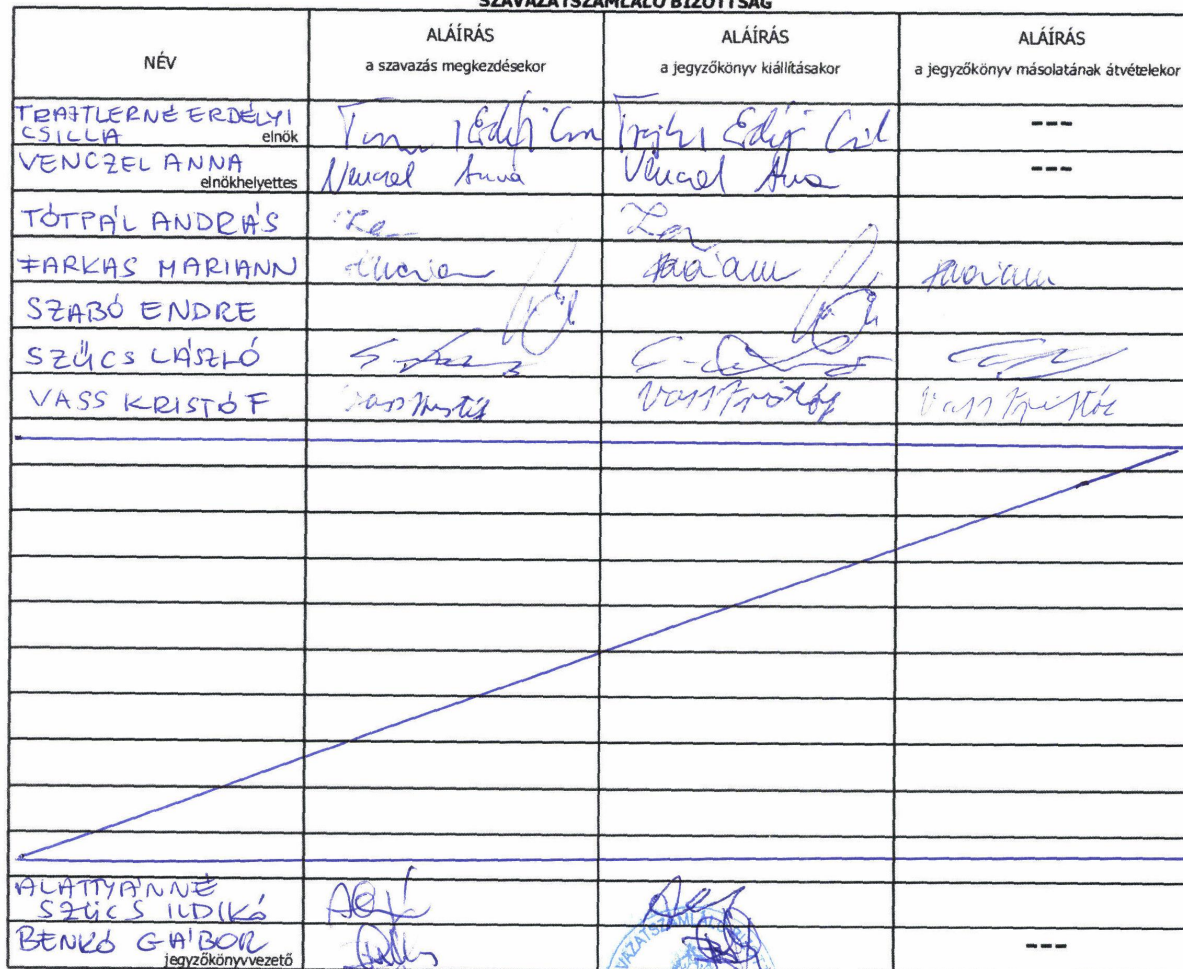 SZAVAZATSZÁMLÁLÓ BIZOTTSÁG
NÉV
ALÁÍRÁS
a szavazás megkezdésekor
ALÁÍRÁS
a jegyzőkönyv kiállításakor
ALÁÍRÁS
a jegyzőkönyv másolatának átvételekor
TRAJTLERNÉ ERDÉLYI
CSILLA elnök
---
VENCZEL ANNA
elnökhelyettes
Venczel Anna
---
TÓTPÁL ANDRÁS
FARKAS MARIANN
SZABÓ ENDRE
SZŰCS LÁSZLÓ
VASS KRISTÓF
Vass Kristóf
Vass Kristóf
Vass Kristóf
ALATTYÁNNÉ
SZŰCS ILDIKÓ
BENKŐ GÁBOR
jegyzőkönyvvezető
---